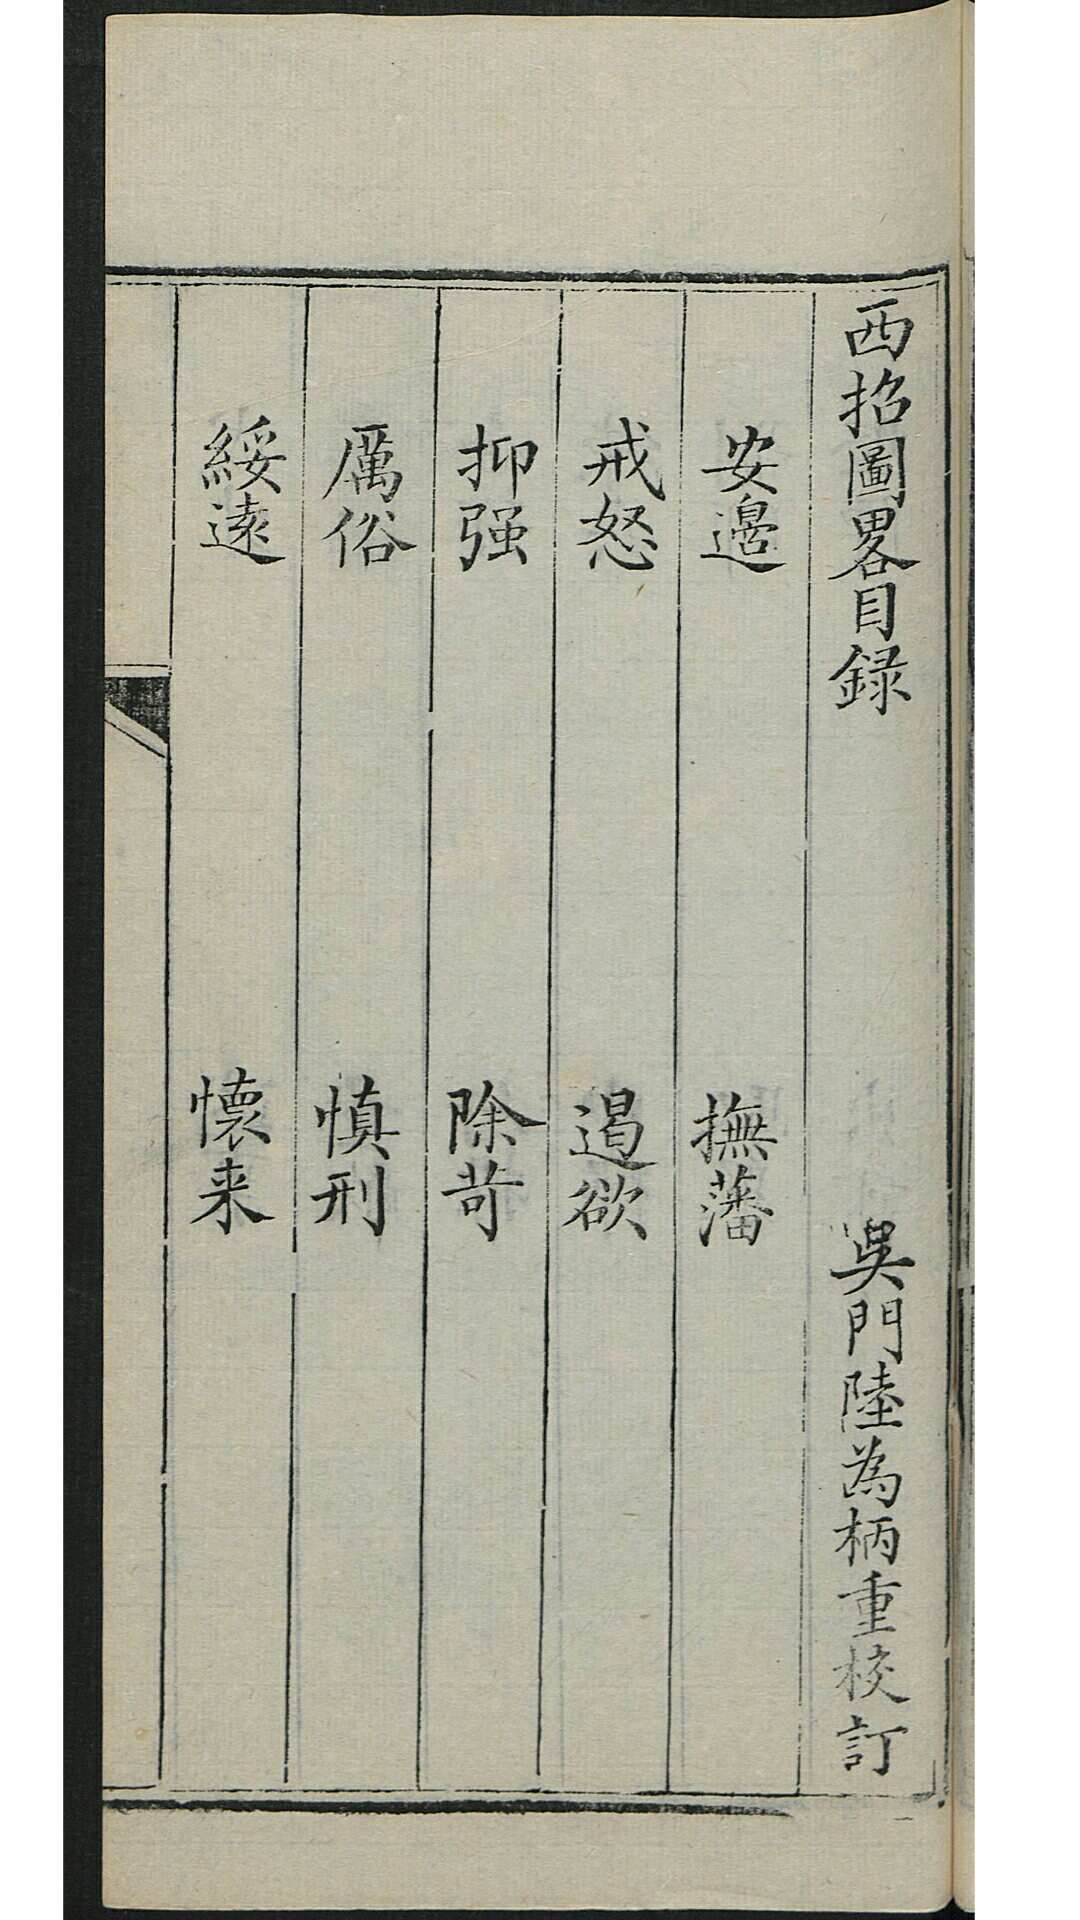 西招圖畧目録 吳門陸為柄重校訂
安邉 撫藩
戒怒 遏欲
抑强 除苛
厲俗 慎刑
綏逺 懐来